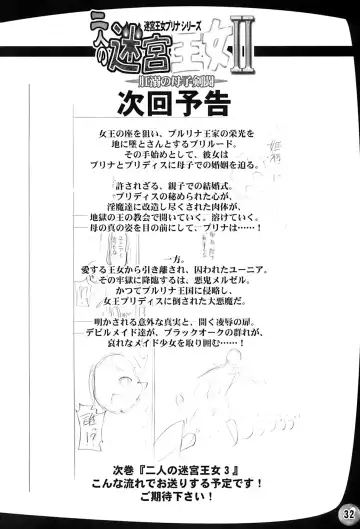 迷宮王女プリナ シリーズ
二人の迷宮王女Ⅱ
次回予告
女王の座を狙い、プルリナ王家の栄光を
地に墜とさんとするプリルード。
その手始めとして、彼女は
プリナとプリディスに母子での婚姻を迫る。
許されざる、親子での結婚式。
プリディスの秘められた心が、
淫魔達に改造し尽くされた肉体が、
地獄の王の教会で開いていく。溶けていく。
母の真の姿を目の前にして、プリナは……!
一方。
愛する王女から引き離され、囚われたユーニア。
その牢獄に降臨するは、悪鬼メルゼル。
かつてプルリナ王国に侵略し、
女王プリディスに倒された大悪魔だ。
明かされる意外な真実と、開く凌辱の扉。
デビルメイド達が、ブラックオークの群れが、
哀れなメイド少女を取り囲む…!
誰!?
次巻『二人の迷宮王女3』
こんな流れでお送りする予定です!
ご期待下さい!
32